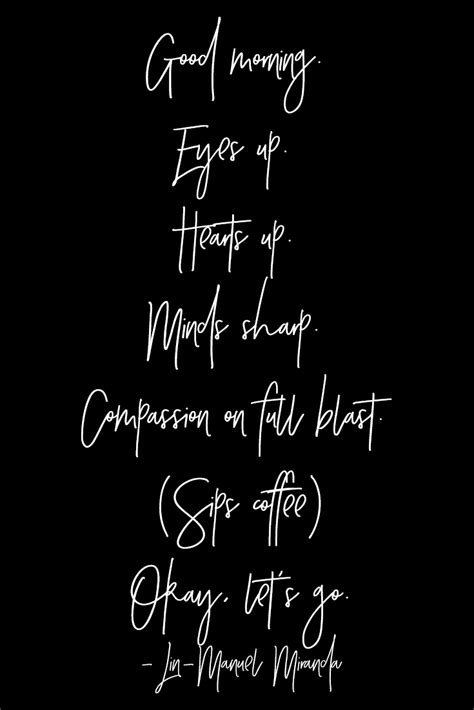 Good morning.
Eyes up.
Hearts up.
Minds sharp.
Compassion on full blast.
(Sips coffee)
Okay, let's go.
- Lin-Manuel Miranda